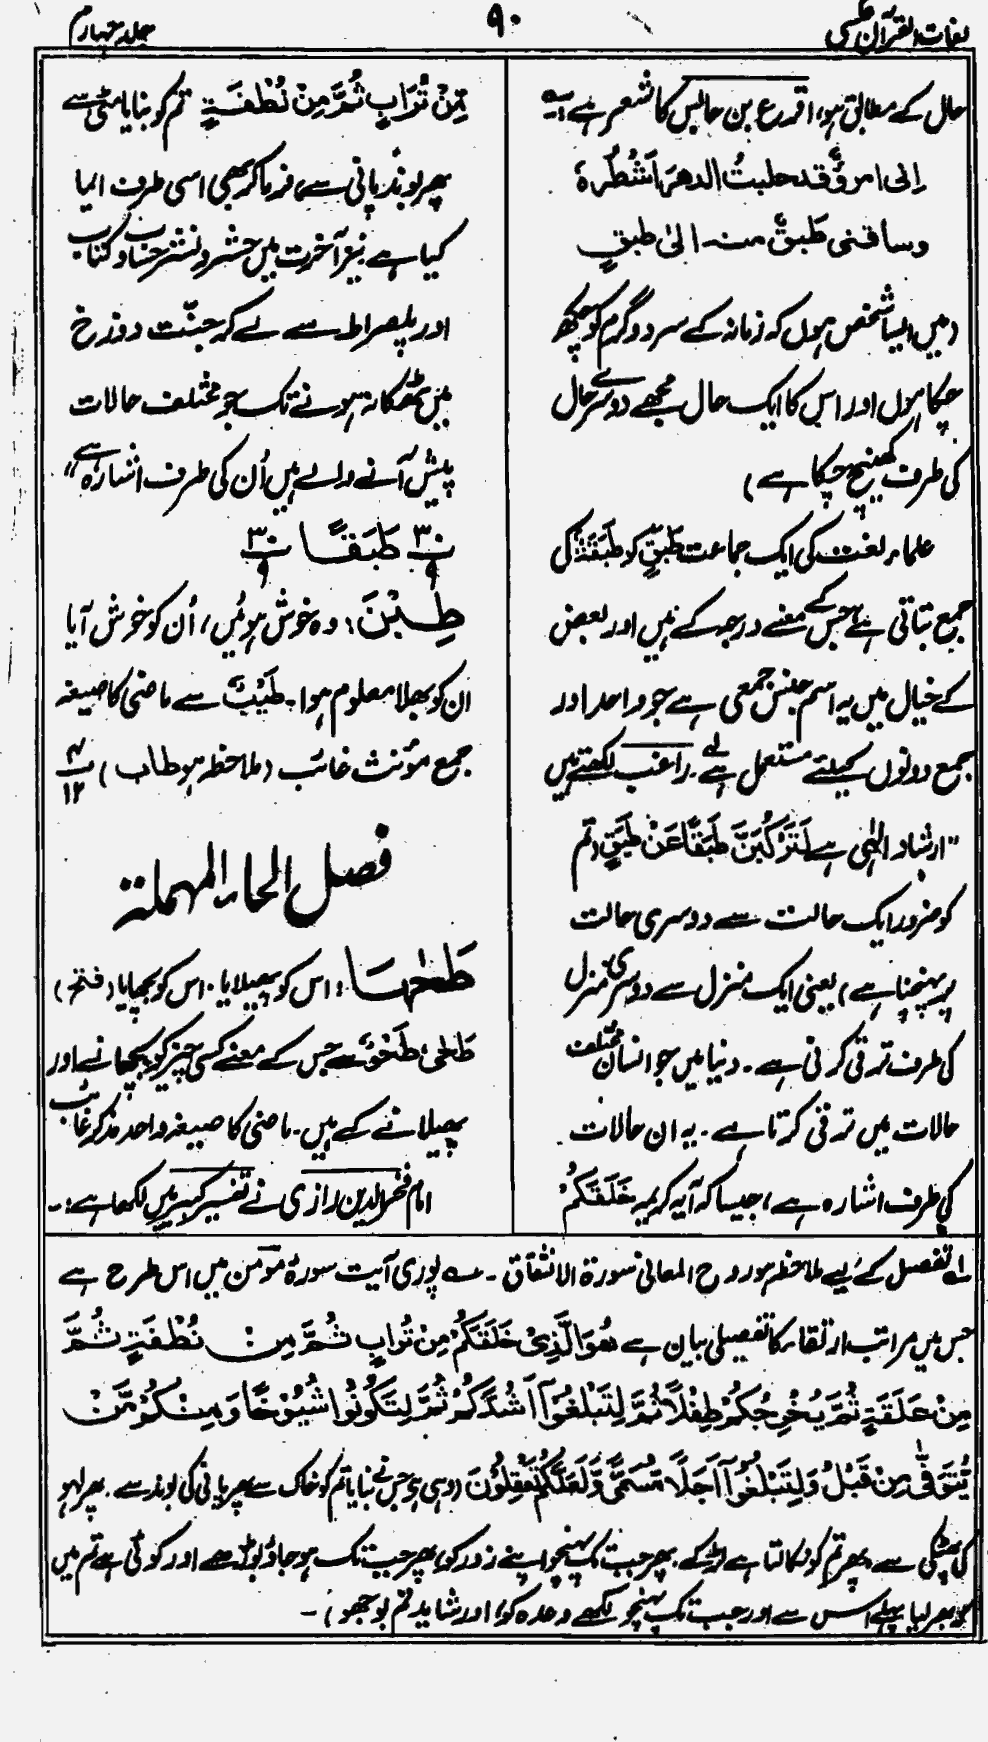 لغات القرآن عکسی
۹۰
جلد چہارم
حال کے مطابق ہو، اقرع بن حابس کا شعر ہے ؎
اِنی امرؤٌ قد حلبتُ الدھرَ اَشْطُرَہٗ
وساقنی طَبَقٌ منہ الیٰ طبقٍ
(میں ایسا شخص ہوں کہ زمانہ کے سرد و گرم کو چکھ
چکا ہوں اور اس کا ایک حال مجھے دوسرے حال
کی طرف کھینچ چکا ہے)
علماء لغت کی ایک جماعت طَبَقٍ کو طَبَقَۃٌ کی
جمع بتاتی ہے جس کے معنے درجہ کے ہیں اور بعض
کے خیال میں یہ اسم جنس جمعی ہے جو واحد اور
جمع دونوں کیلئے مستعمل ہے لہ۔ راغب لکھتے ہیں
"ارشاد الٰہی ہے لَتَرْكَبُنَّ طَبَقًا عَنْ طَبَقٍ (تم
کو ضرور ایک حالت سے دوسری حالت
پر پہنچنا ہے) یعنی ایک منزل سے دوسری منزل
کی طرف ترقی کرنی ہے۔ دنیا میں جو انسان مختلف
حالات میں ترقی کرتا ہے۔ یہ ان حالات
کی طرف اشارہ ہے، جیسا کہ آیہ کریمہ خَلَقَكُمْ
مِّنْ تُرَابٍ ثُمَّ مِنْ نُطْفَةٍ تم کو بنایا مٹی سے
پھر بوند پانی سے، فرما کر بھی اسی طرف ایما
کیا ہے نیز آخرت میں حشر و نشر حساب و کتاب
اور پلصراط سے لے کر جنّت دوزخ
میں ٹھکانہ ہونے تک جو مختلف حالات
پیش آنے والے ہیں اُن کی طرف اشارہ ہے"
۳۰ ۹ طَبَقًا ۳۰ ۹
طِبْنَ : وہ خوش ہوئیں، اُن کو خوش آیا
ان کو بھلا معلوم ہوا۔ طَیْبٌ سے ماضی کا صیغہ
جمع مؤنث غائب (ملاحظہ ہو طاب) ۴ ۱۲
فصل الحاء المہملۃ
طَحٰہَا : اس کو پھیلایا۔ اس کو بچھایا (فتح)
طَحٰی، طَحْوٌ سے جس کے معنے کسی چیز کو بچھانے اور
پھیلانے کے ہیں۔ ماضی کا صیغہ واحد مذکر غائب
امام فخر الدین رازی نے تفسیر کبیر میں لکھا ہے :۔
لہ تفصیل کے لیے ملاحظہ ہو روح المعانی سورۃ الانشقاق ۔ ؎ پوری آیت سورۂ مؤمن میں اس طرح ہے
جس میں مراتب ارتقاء کا تفصیلی بیان ہے هُوَ الَّذِیْ خَلَقَكُمْ مِنْ تُرَابٍ ثُمَّ مِنْ نُطْفَةٍ ثُمَّ
مِنْ عَلَقَةٍ ثُمَّ يُخْرِجُكُمْ طِفْلًا ثُمَّ لِتَبْلُغُوْآ اَشُدَّكُمْ ثُمَّ لِتَكُوْنُوْا شُيُوْخًا وَمِنْكُمْ مَّنْ
يُّتَوَفّٰى مِنْ قَبْلُ وَلِتَبْلُغُوْآ اَجَلًا مُّسَمًّى وَّلَعَلَّكُمْ تَعْقِلُوْنَ (وہی ہے جس نے بنایا تم کو خاک سے پھر پانی کی بوند سے۔ پھر لہو
کی پھٹکی سے، پھر تم کو نکالتا ہے لڑکے، پھر جب تک پہنچو اپنے زور کو، پھر جب تک ہو جاؤ بوڑھے اور کوئی ہے تم میں
کہ بھر لیا پہلے اس سے اور جب تک پہنچو لکھے وعدہ کو، اور شاید تم بوجھو) ۔